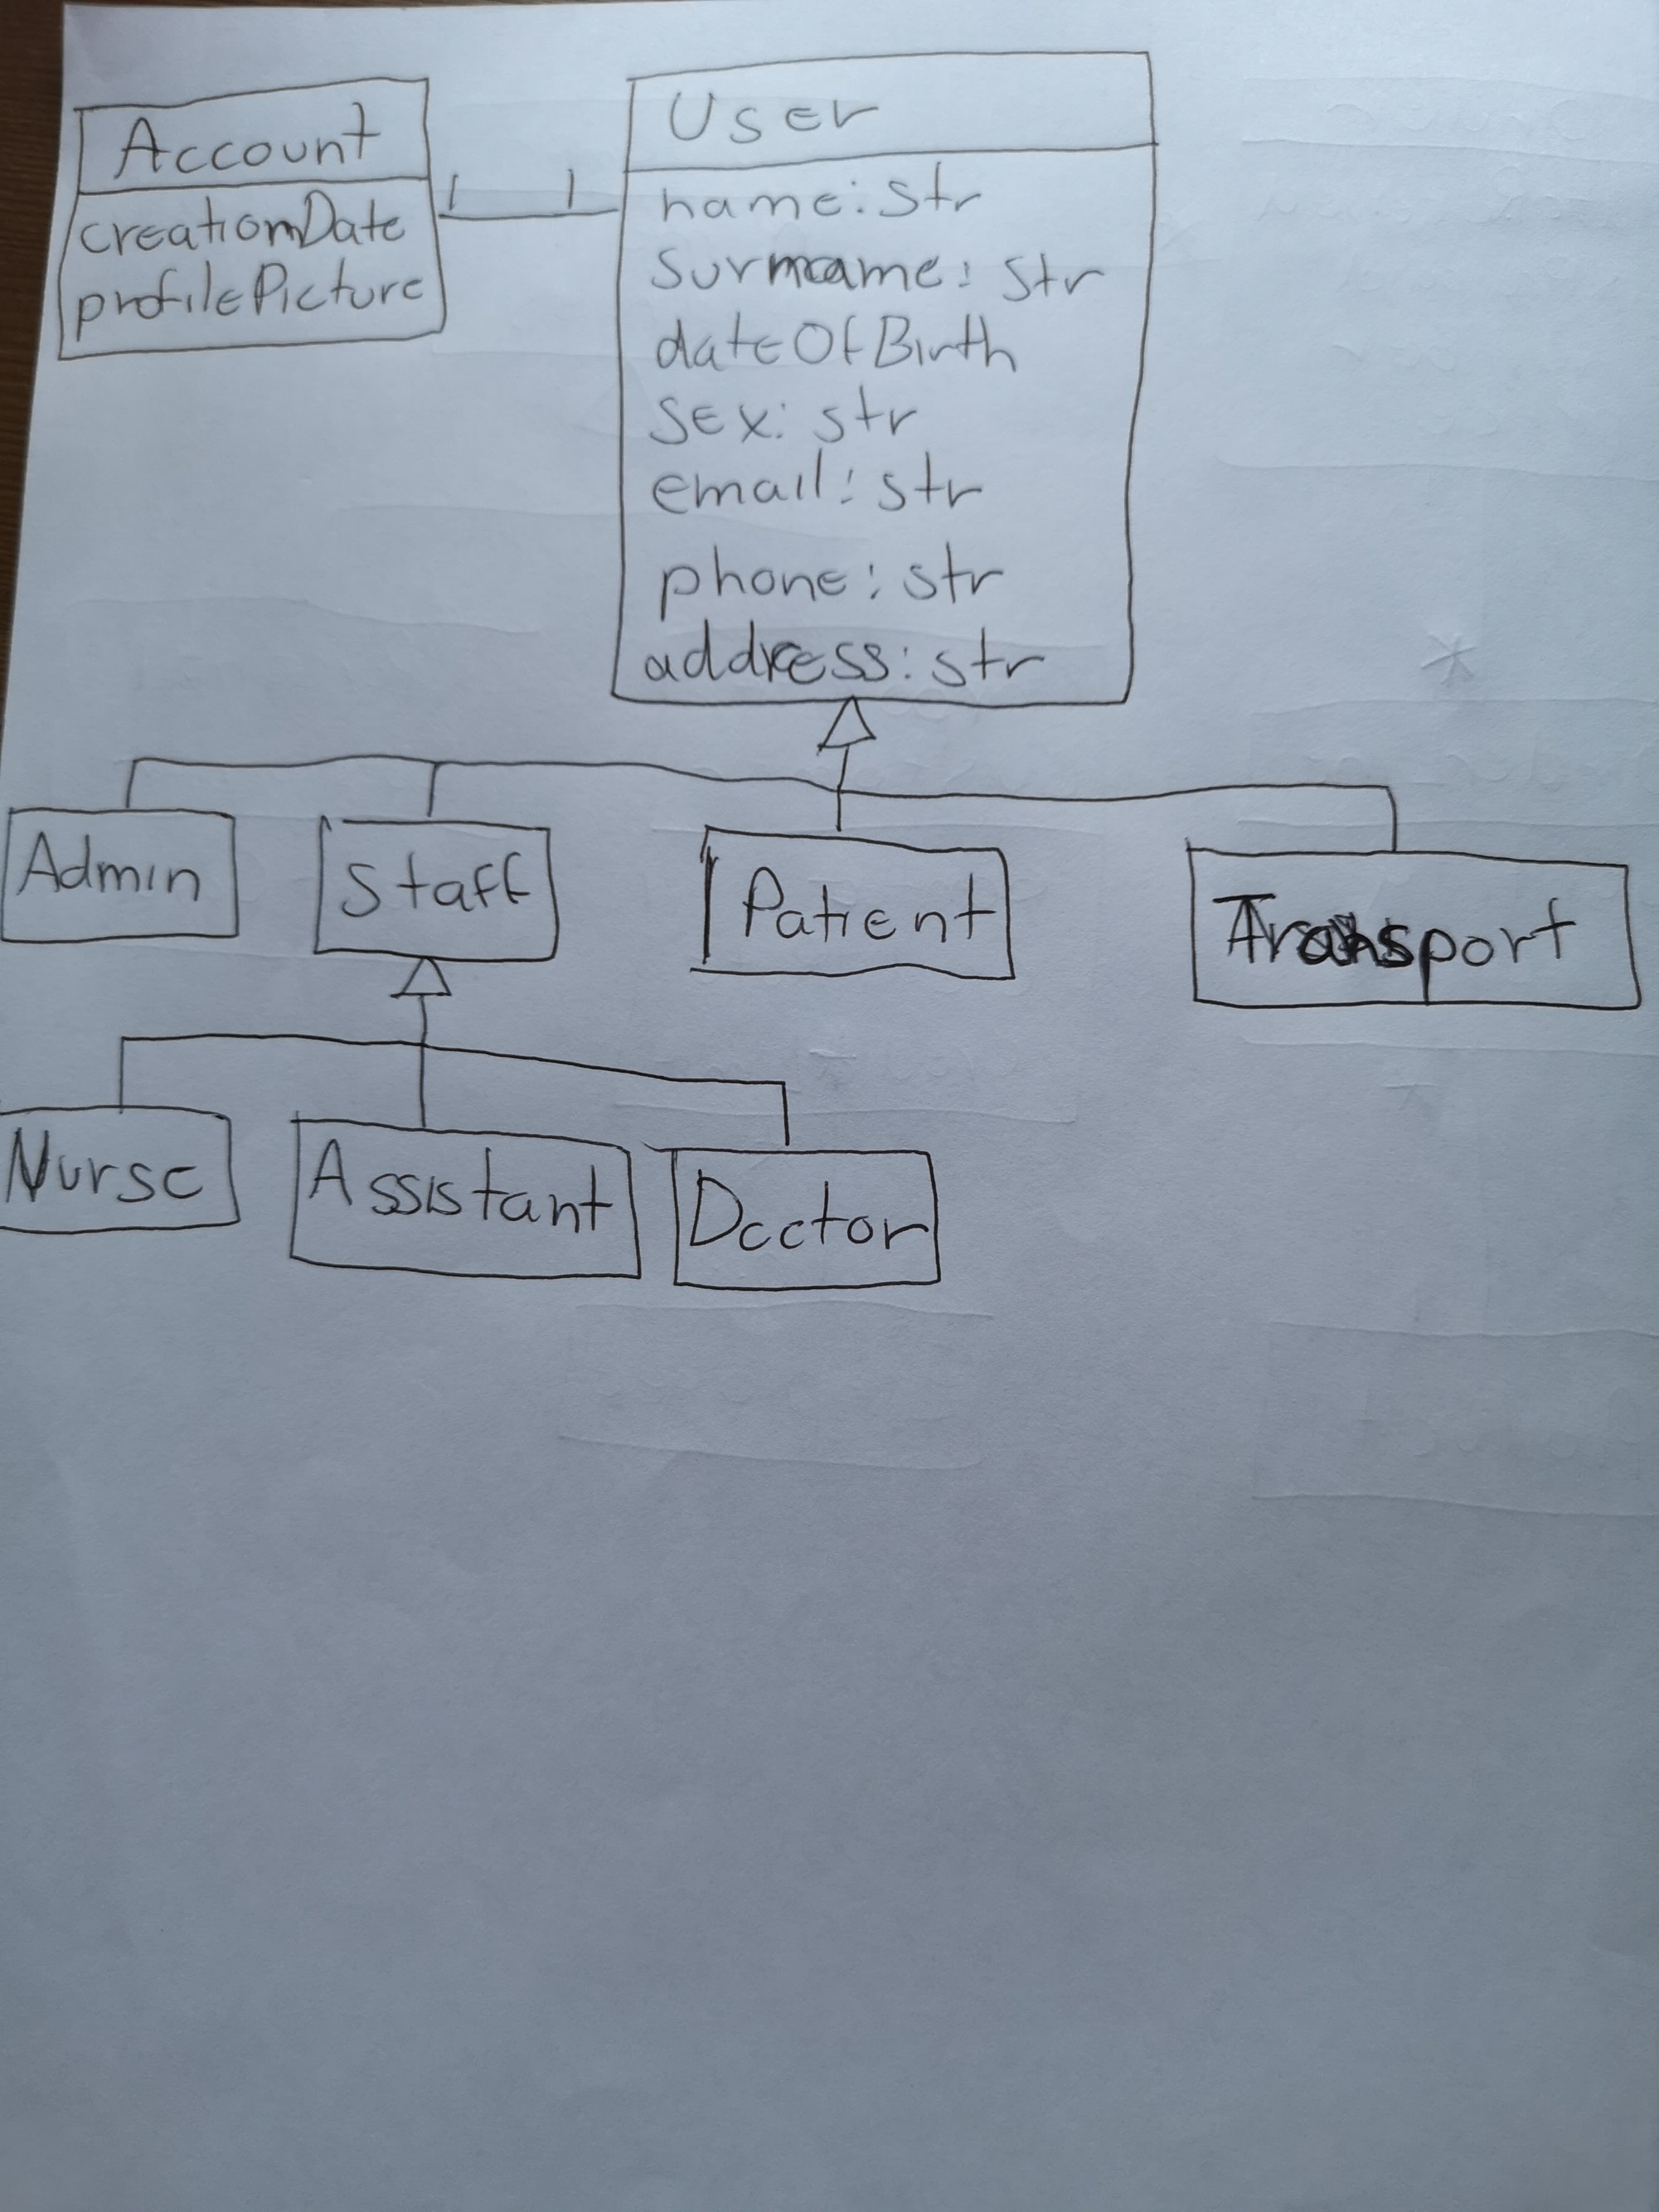 Account
creationDate
profilePicture
1 1
User
name: str
surname: str
dateOfBirth
sex: str
email: str
phone: str
address: str
Admin
Staff
Patient
Transport
Nurse
Assistant
Doctor